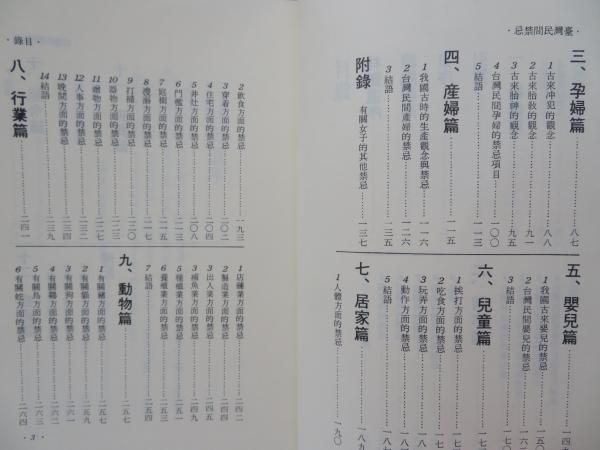 ·臺灣民間禁忌·
三、孕婦篇……八七
1 古來沖犯的觀念……八八
2 古來胎教的觀念……九一
3 古來胎神的觀念……九五
4 台灣民間孕婦的禁忌項目……一〇〇
5 結語……一一三
四、産婦篇……一一五
1 我國古時的生產觀念與禁忌……一一六
2 台灣民間產婦的禁忌……一二六
3 結語……一三五
附錄 有關女子的其他禁忌……一三七
五、嬰兒篇……一四九
1 我國古來嬰兒的禁忌……一五〇
2 台灣民間嬰兒的禁忌……一六
3 結語……一七〇
六、兒童篇……一七
1 挨打方面的禁忌……一七
2 吃食方面的禁忌……一七
3 玩弄方面的禁忌……一
4 動作方面的禁忌……一八
5 結語……一八
七、居家篇……一八九
1 人體方面的禁忌……一九〇
·目錄·
2 飲食方面的禁忌……一九三
3 穿着方面的禁忌……二〇二
4 住宅方面的禁忌……二〇四
5 井灶方面的禁忌……二〇八
6 門檻方面的禁忌……二一三
7 庭樹方面的禁忌……二一五
8 方面的禁忌……二一七
9 打掃方面的禁忌……二二〇
10 器物方面的禁忌……二二三
11 贈物方面的禁忌……二三
12 人事方面的禁忌……二三二
13 晚間方面的禁忌……二三四
14 結語……二三九
八、行業篇……二四一
1 店鋪業方面的禁忌……二四二
2 製造業方面的禁忌……二四四
3 出入業方面的禁忌……二四五
4 捕魚業方面的禁忌……二四九
5 種植業方面的禁忌……二五一
6 養殖業方面的禁忌……二五二
7 結語……二五四
九、動物篇……二五七
1 有關豬方面的禁忌……二五七
2 有關貓方面的禁忌……二五九
3 有關狗方面的禁忌……二六〇
4 有關雞方面的禁忌……二六一
5 有關鳥方面的禁忌……二六三
6 有關蛇方面的禁忌……二六四
·3·